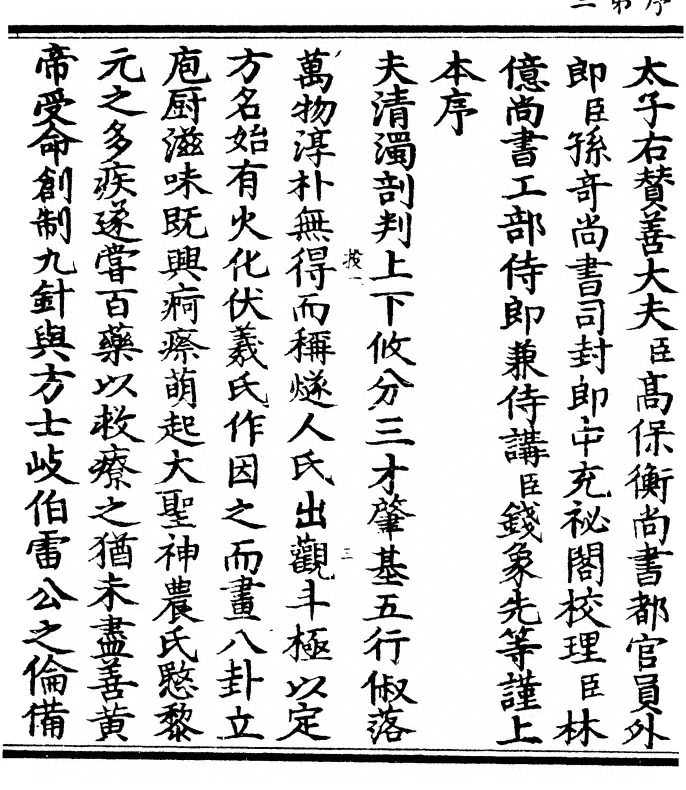 太子右賛善大夫臣髙保衡尚書都官員外
郎臣孫竒尚書司封郎中充祕閣校理臣林
億尚書工部侍郎兼侍講臣錢象先等謹上
本序
夫清濁剖判上下攸分三才肇基五行俶落
萬物淳朴無得而稱燧人氏出觀斗極以定
方名始有火化伏羲氏作因之而畫八卦立
庖厨滋味既興痾瘵萌起大聖神農氏愍黎
元之多疾遂嘗百藥以救療之猶未盡善黃
帝受命創制九針與方士岐伯雷公之倫備